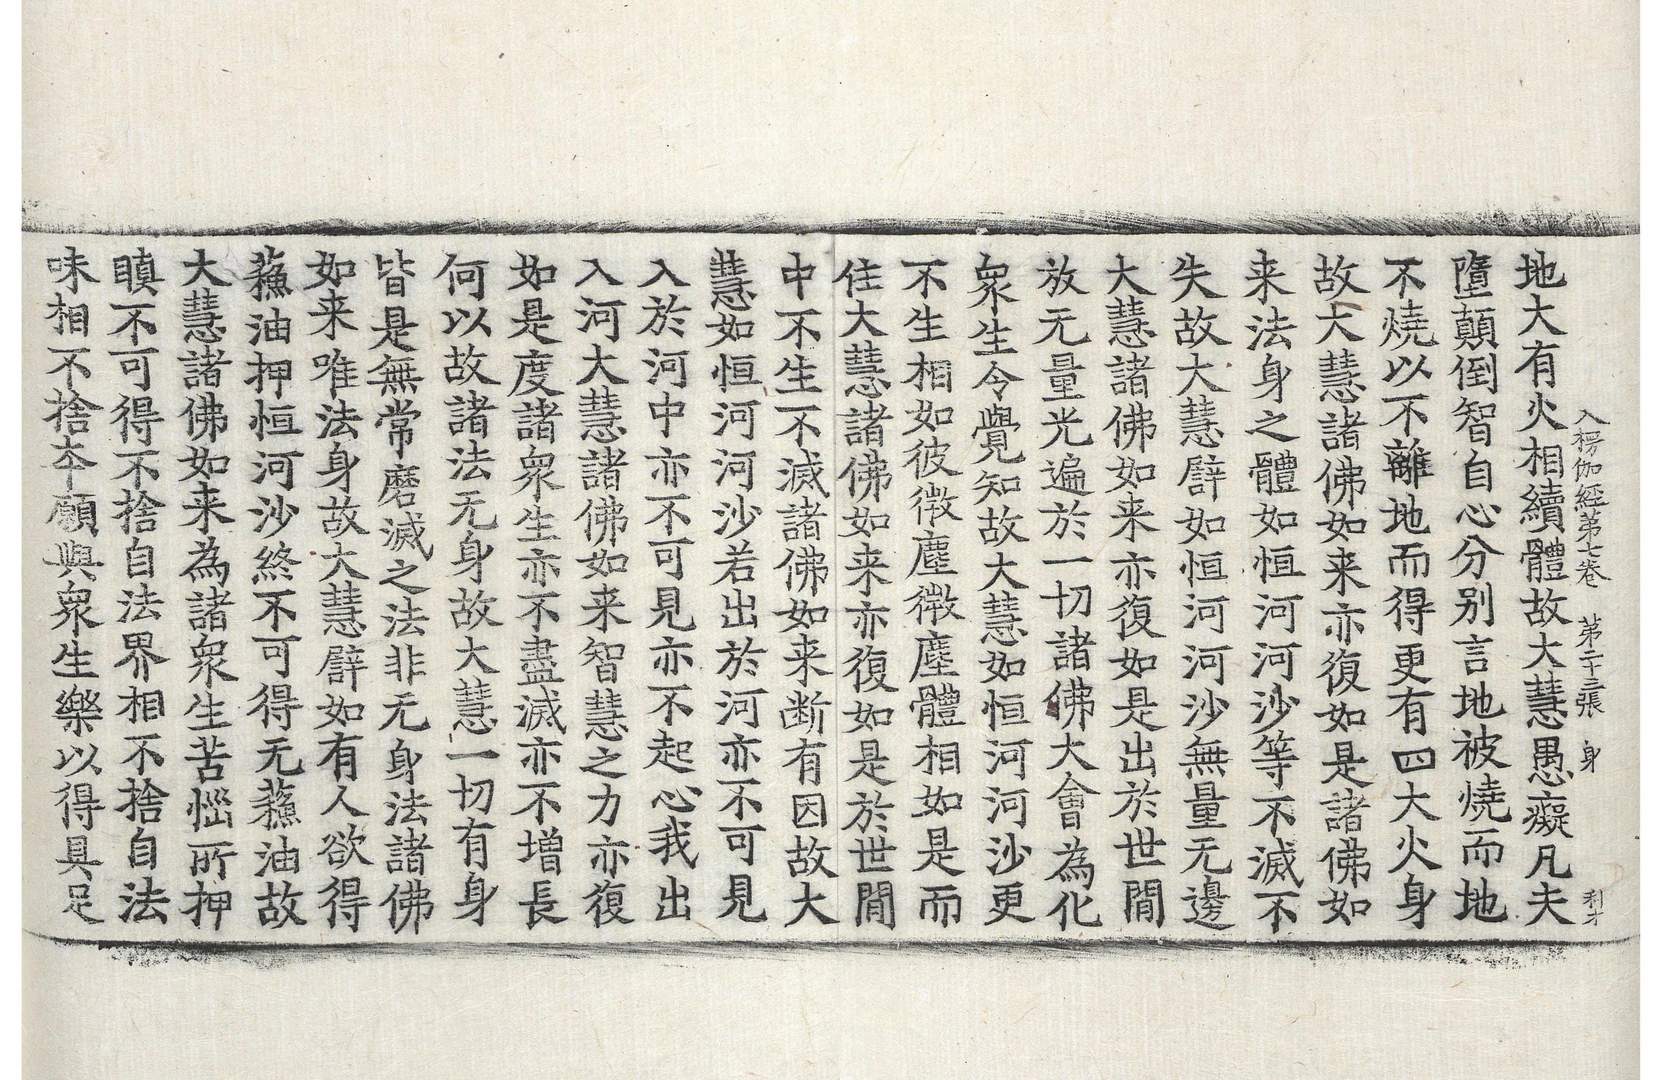 入楞伽經第七卷　第二十三張　身　利才
地大有火相續體故大慧愚癡凡夫
墮顛倒智自心分別言地被燒而地
不燒以不離地而得更有四大火身
故大慧諸佛如来亦復如是諸佛如
来法身之體如恒河河沙等不滅不
失故大慧譬如恒河河沙無量无邊
大慧諸佛如来亦復如是出於世間
放无量光遍於一切諸佛大會為化
衆生令覺知故大慧如恒河河沙更
不生相如彼微塵微塵體相如是而
住大慧諸佛如来亦復如是於世間
中不生不滅諸佛如来断有因故大
慧如恒河河沙若出於河亦不可見
入於河中亦不可見亦不起心我出
入河大慧諸佛如来智慧之力亦復
如是度諸衆生亦不盡滅亦不增長
何以故諸法无身故大慧一切有身
皆是無常磨滅之法非无身法諸佛
如来唯法身故大慧譬如有人欲得
蘓油押恒河沙終不可得无蘓油故
大慧諸佛如来為諸衆生苦惱所押
瞋不可得不捨自法界相不捨自法
味相不捨夲願與衆生樂以得具足